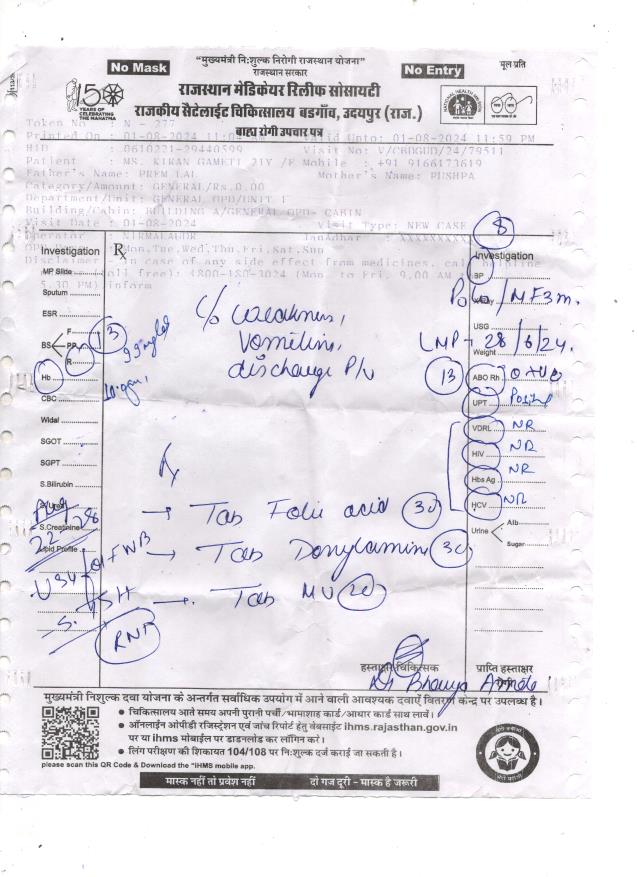 No Mask
"मुख्यमंत्री नि:शुल्क निरोगी राजस्थान योजना"
राजस्थान सरकार
No Entry
मूल प्रति
150
YEARS OF
CELEBRATING
THE MAHATMA
राजस्थान मेडिकेयर रिलीफ सोसायटी
राजकीय सैटेलाईट चिकित्सालय बडगाँव, उदयपुर (राज.)
बाह्य रोगी उपचार पत्र
Token No : N - 277
Printed On : 01-08-2024 11:04 AM Valid Unto: 01-08-2024 11:59 PM
HID : 0610221-29440599 Visit No: V/CBDGUD/24/79511
Patient : MS. KIRAN GAMETI 21Y /F Mobile : +91 9166173619
Father's Name: PREM LAL Mother's Name: PUSHPA
Category/Amount: GENERAL/Rs.0.00
Department/Unit: GENERAL OPD/UNIT I
Building/Cabin: BUILDING A/GENERAL OPD- CABIN
Visit Date : 01-08-2024 Visit Type: NEW CASE
Operator : NIRMALAUDR JanAadhar : XXXXXXXXX
Mon,Tue,Wed,Thu,Fri,Sat,Sun
Disclaimer : In case of any side effect from medicines, call helpline
(toll free): 1800-180-3024 (Mon. to Fri. 9.00 AM
5.30 PM) inform
8
Investigation
Rx
Investigation
MP Slide
Sputum
ESR
BS F
PP
R
13
99 mg/dl
Hb
10 gm
CBC
Widal
SGOT
SGPT
S.Bilirubin
S.Urea
S.Creatinine
Lipid Profile
c/o weakness,
vomiting,
discharge P/V
BP
X-Ray
USG
LMP - 28/6/24.
Weight
13
ABO Rh O+ve
UPT Positive
VDRL NR
HIV NR
Hbs Ag NR
HCV NR
Urine Alb
Sugar
Rx
→ Tab Folic acid 30
→ Tab Doxylamine 30
→ Tab MV 20
22-28
S. TSH
हस्ताक्षर चिकित्सक
Dr Bhavya
प्राप्ति हस्ताक्षर
मुख्यमंत्री निशुल्क दवा योजना के अन्तर्गत सर्वाधिक उपयोग में आने वाली आवश्यक दवाएँ वितरण केन्द्र पर उपलब्ध है।
• चिकित्सालय आते समय अपनी पुरानी पर्ची/भामाशाह कार्ड/आधार कार्ड साथ लावें।
• ऑनलाईन ओपीडी रजिस्ट्रेशन एवं जांच रिपोर्ट हेतु वेबसाईट ihms.rajasthan.gov.in
पर या ihms मोबाईल पर डाडनलोड कर लॉगिन करे।
• लिंग परीक्षण की शिकायत 104/108 पर नि:शुल्क दर्ज कराई जा सकती है।
please scan this QR Code & Download the "IHMS mobile app.
मास्क नहीं तो प्रवेश नहीं
दो गज दूरी - मास्क है जरूरी